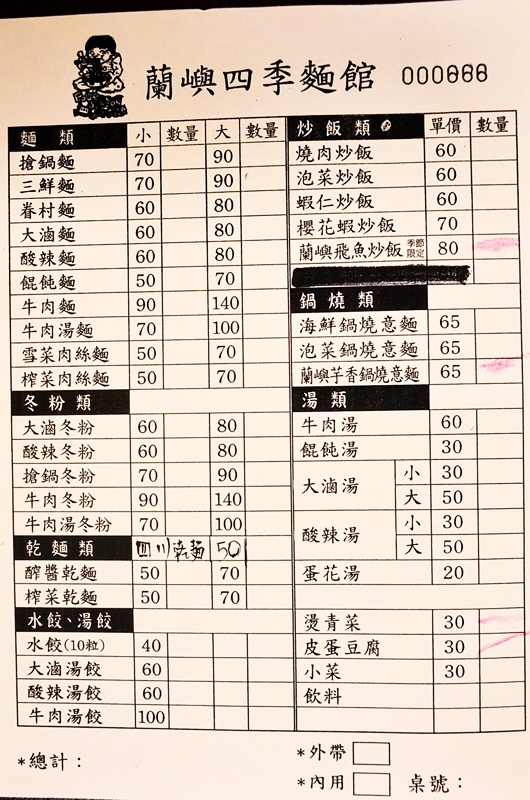 蘭嶼四季麵館 000666
麵類 小 數量 大 數量
搶鍋麵 70 90
三鮮麵 70 90
眷村麵 60 80
大滷麵 60 80
酸辣麵 60 80
餛飩麵 50 70
牛肉麵 90 140
牛肉湯麵 70 100
雪菜肉絲麵 50 70
榨菜肉絲麵 50 70
冬粉類
大滷冬粉 60 80
酸辣冬粉 60 80
搶鍋冬粉 70 90
牛肉冬粉 90 140
牛肉湯冬粉 70 100
乾麵類 四川乾麵 50
醡醬乾麵 50 70
榨菜乾麵 50 70
水餃、湯餃
水餃(10粒) 40
大滷湯餃 60
酸辣湯餃 60
牛肉湯餃 100
炒飯類 單價 數量
燒肉炒飯 60
泡菜炒飯 60
蝦仁炒飯 60
櫻花蝦炒飯 70
蘭嶼飛魚炒飯 季節限定 80
鍋燒類
海鮮鍋燒意麵 65
泡菜鍋燒意麵 65
蘭嶼芋香鍋燒意麵 65
湯類
牛肉湯 60
餛飩湯 30
大滷湯 小 30
大 50
酸辣湯 小 30
大 50
蛋花湯 20
燙青菜 30
皮蛋豆腐 30
小菜 30
飲料
*總計：
*外帶
*內用 桌號：